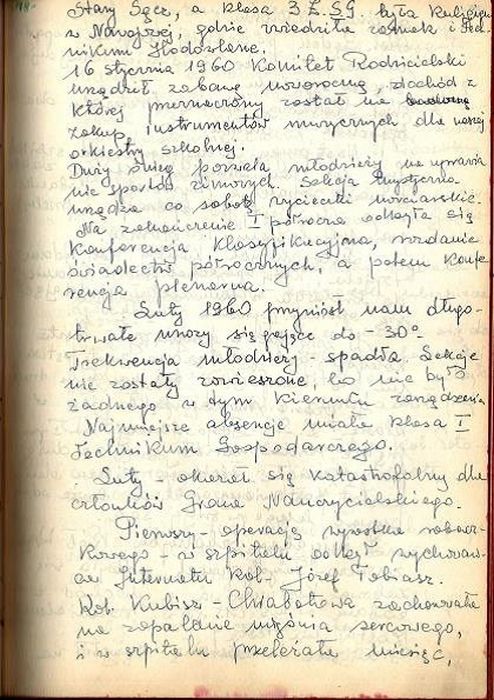 Stary Sącz, a klasa 3 Z.SG była kuligiem
w Nawojowej, gdzie zwiedziła zamek i Tech-
nikum Hodowlane.
16 stycznia 1960 Komitet Rodzicielski
urządził zabawę noworoczną, dochód z
której przeznaczony został na
zakup instrumentów muzycznych dla naszej
orkiestry szkolnej.
Duży śnieg pozwala młodzieży na uprawia
nie sportów zimowych. Sekcja turystyczna
urządza co sobotę wycieczki narciarskie.
Na zakończenie I półrocza odbyła się
konferencja klasyfikacyjna, rozdanie
świadectw półrocznych, a potem konfe
rencja plenarna.
Luty 1960 przyniósł nam długo-
trwałe mrozy sięgające do -30°
Frekwencja młodzieży - spadła. Lekcje
nie zostały zawieszone, bo nie było
żadnego w tym kierunku zarządzenia
Najmniejsze absencje miała klasa I
Technikum Gospodarczego.
Luty - okazał się katastrofalny dla
członków Grona Nauczycielskiego.
Pierwszy - operację wyrostka robacz-
kowego - w szpitalu odbył wychowaw-
ca Internatu kol. Józef Tobiasz.
Kol. Kubisz - Chwabotowa zachorowała
na zapalenie mięśnia sercowego,
i w szpitalu przeleżała miesiąc,